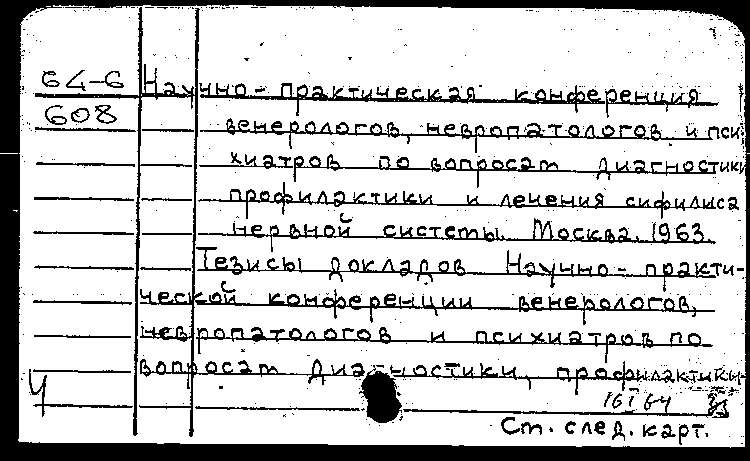 64-6 Научно-практическая конференция
608 венерологов, невропатологов и пси-
хиатров по вопросам диагностики
профилактики и лечения сифилиса
нервной системы. Москва. 1963.
Тезисы докладов Научно-практи-
ческой конференции венерологов,
невропатологов и психиатров по
вопросам диагностики, профилактики
Ч
16 I 64
Ст. след. карт.